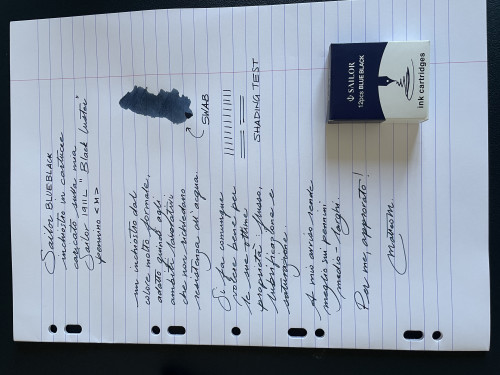 Sailor BLUE BLACK
inchiostro in cartucce
caricato sulla mia
Sailor 1911L "Black Luster"
pennino <M>
un inchiostro dal
colore molto formale,
adatto quindi agli
ambiti lavorativi
che non richiedano
resistenza all'acqua.
SWAB
SHADING TEST
Si fa comunque
volere bene per
le sue ottime
proprietà: flusso,
lubrificazione e
saturazione.
A mio avviso rende
meglio sui pennini
medio-larghi.
Per me, approvato!
SAILOR
12pcs BLUE BLACK
ink cartridges